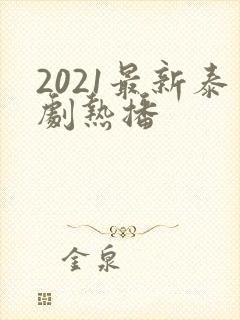 2021最新泰
劇熱播
金泉